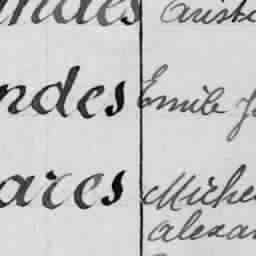 ndes Arist
ndes Emile
ares Miche
alexan